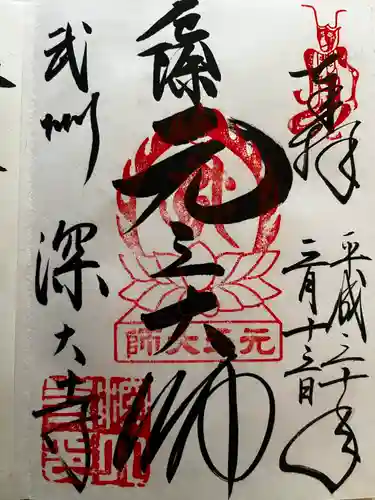 奉拝
平成三十年
三月十三日
元三大師
武州
深大寺
元三大師